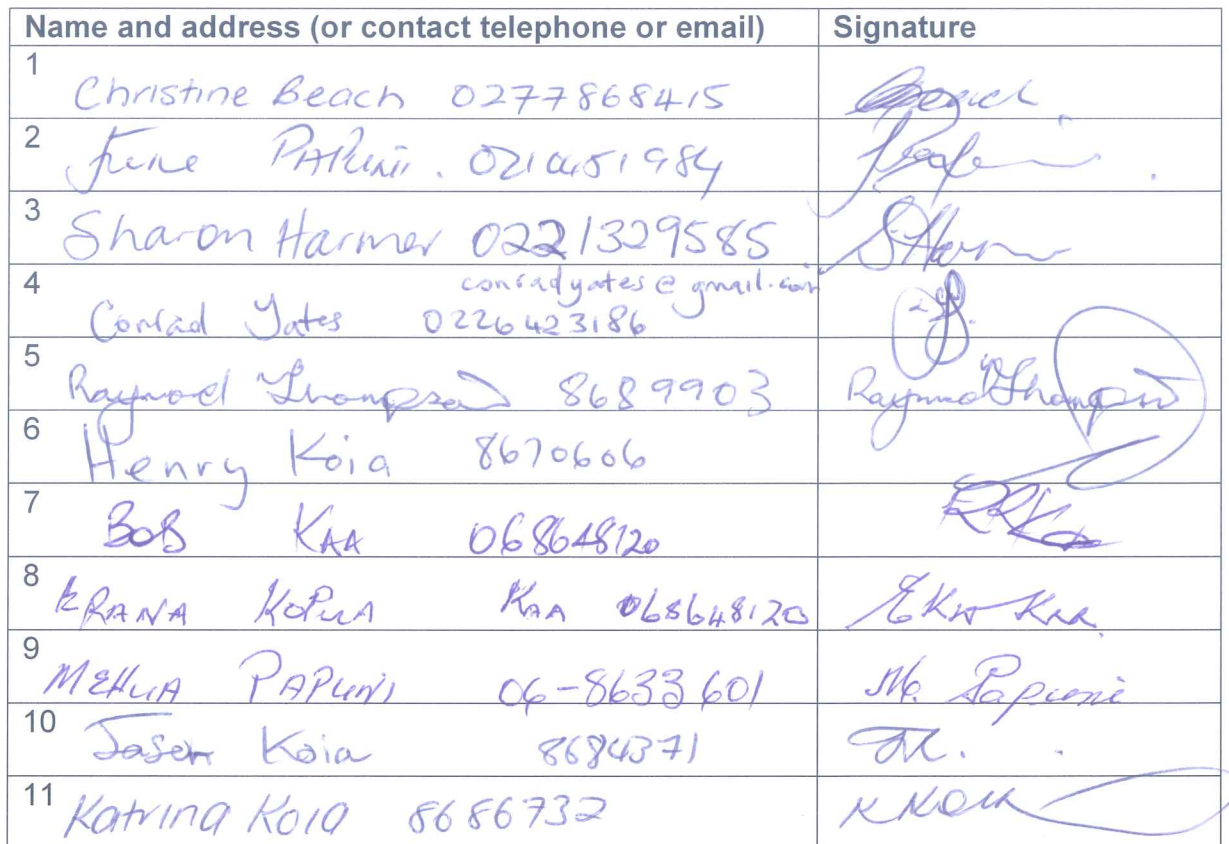 Name and address (or contact telephone or email) Signature
1 Christine Beach 0277868415 Beach
2 June PAPUNi. 021451984
3 Sharon Harmer 0221329585 SHarm
conradyates@gmail.com
4 Conrad Yates 0226423186
5 Raymond Thompson 8689903 Raymond Thompson
6 Henry Koia 8670606
7 BOB KAA 068648120
8 ERANA KOPUA KAA 068648120 EKW Kaa
9 MEHUA PAPUNI 06-8633601 M. Papuni
10 Jason Koia 8684371
11 Katrina Koia 8686732 K Koia